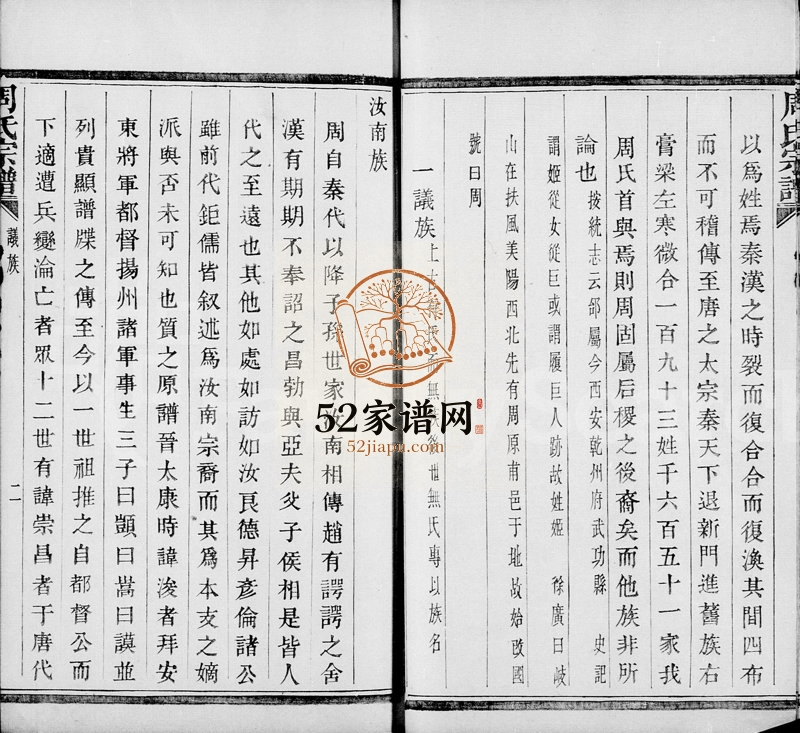 周氏宗譜
以為姓焉秦漢之時裂而復合合而復渙其間四布
而不可稽傳至唐之太宗秦天下退新門進舊族右
膏梁左寒微合一百九十三姓千六百五十一家我
周氏首與焉則周固屬后稷之後裔矣而他族非所
論也 按統志云邰屬今西安乾州府武功縣 史記
謂姬從女從巨或謂履巨人跡故姓姬 徐廣曰歧
山在扶風美陽西北先有周原南邑于地故始改國
號曰周
一議族 上古 無 後世無氏專以族名
汝南族
周自秦代以降子孫世家汝南相傳趙有諤諤之舍
漢有期期不奉詔之昌勃與亞夫父子侯相是皆人
代之至遠也其他如處如訪如汝良德昇彥倫諸公
雖前代鉅儒皆叙述為汝南宗裔而其為本支之嫡
派與否未可知也質之原譜晉太康時諱浚者拜安
東將軍都督揚州諸軍事生三子曰顗曰嵩曰謨並
列貴顯譜牒之傳至今以一世祖推之自都督公而
下適遭兵變淪亡者眾十二世有諱崇昌者于唐代
周氏宗譜 議族 二
52家谱网
52jiapu.com